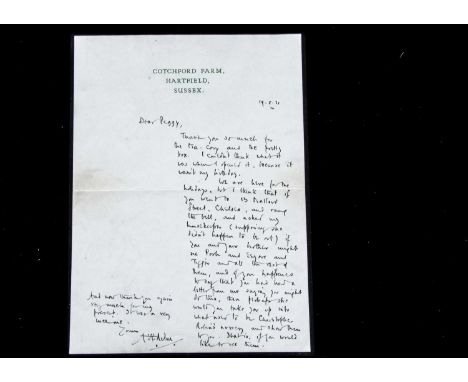 COTCHFORD FARM,
HARTFIELD,
SUSSEX.
Dear Peggy,
Thank you so much for
the Tea-Cosy and the pretty
box. I couldn't think what it
was when I opened it, because it
wasn't my birthday.
We are here for the
holidays, but I think that if
you went to 13 Mallord
Street, Chelsea, and rang
the bell, and asked my
housekeeper (supposing she
didn't happen to be out) if
you and your brother might
see Pooh and Eeyore and
Tigger and all the rest of
them, and if you happened
to say that you have had a
letter from me saying you might
do this, then perhaps she
would take you up into
what used to be Christopher
Robin's nursery and show them
to you. That is, if you would
like to see them.
And now thank you again
very much for my
present. It was a very
Yours
A. A. Milne